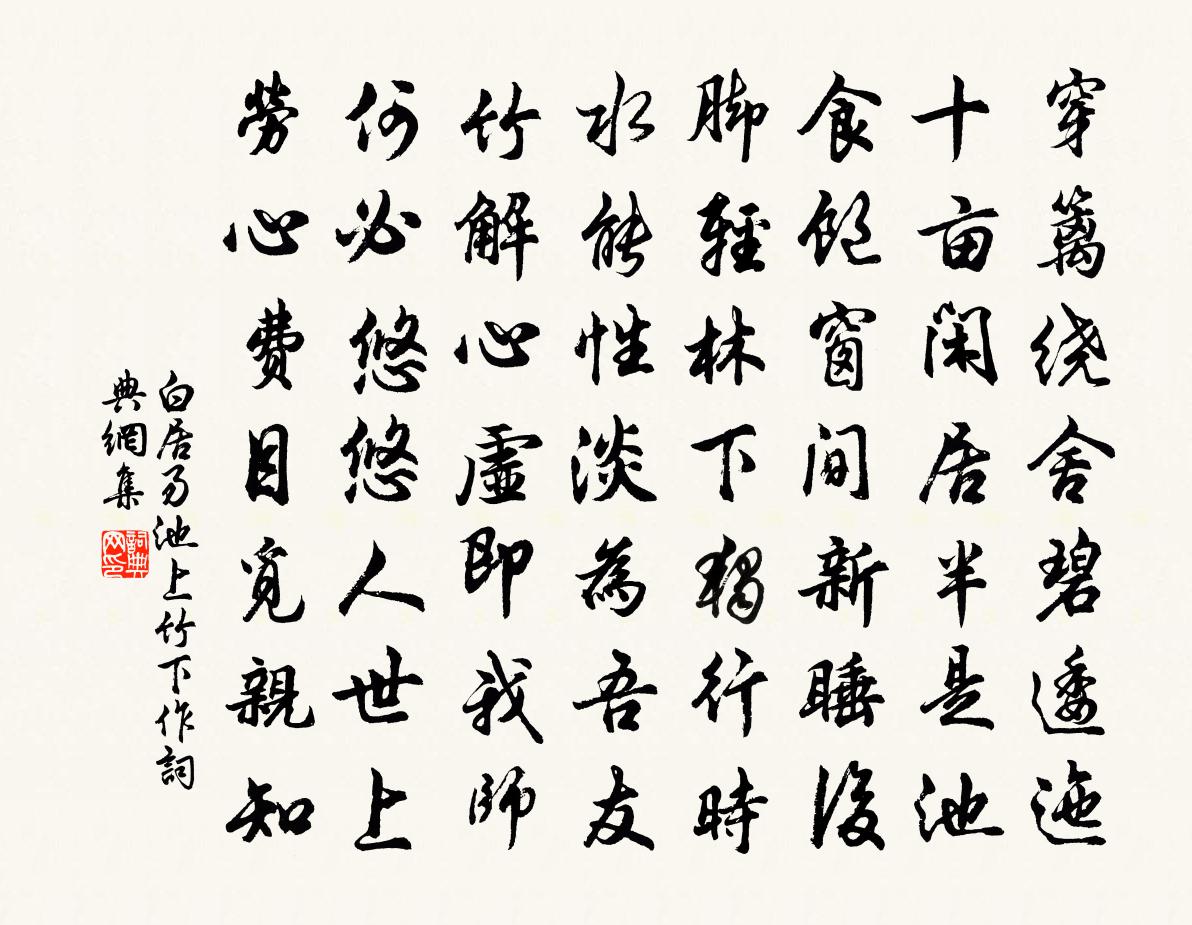 穿籬绕舍碧逶迤
十亩闲居半是池
食飽窗间新睡後
脚輕林下獨行時
水能性淡為吾友
竹解心虛即我師
何必悠悠人世上
勞心費目覓親知
白居易池上竹下作詞
典網集
詞典网印